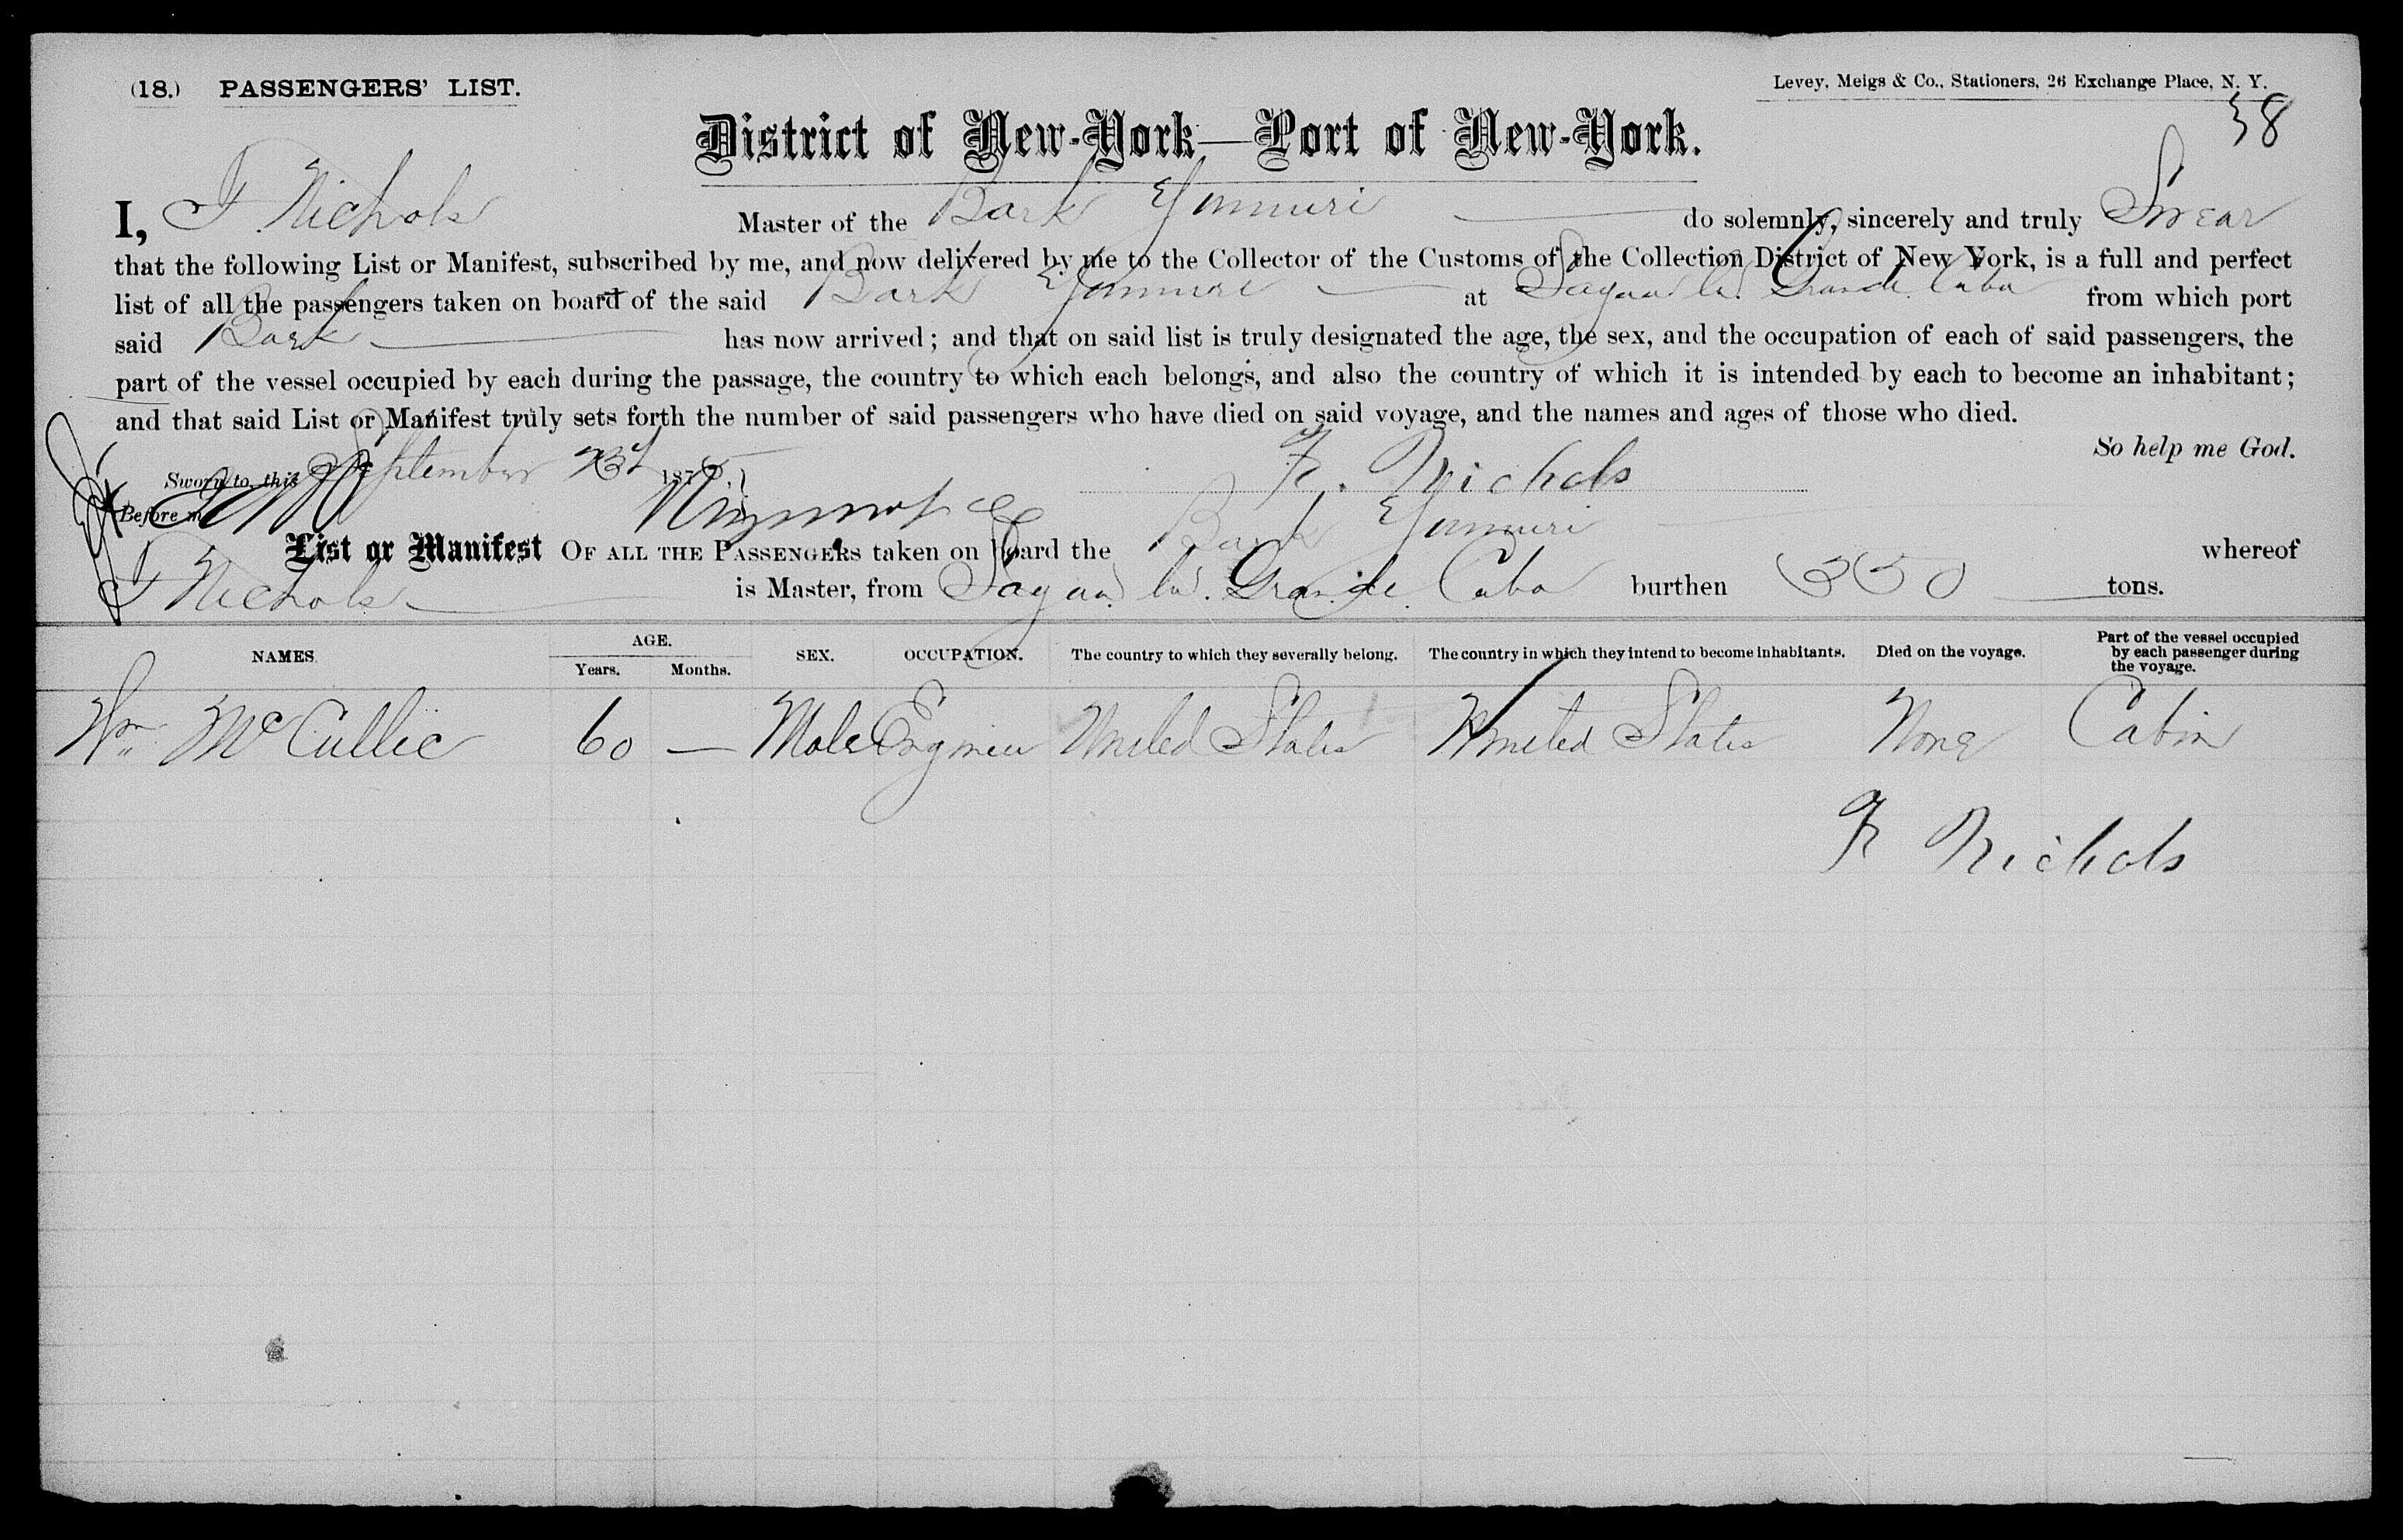 (18.) PASSENGERS' LIST.
Levey, Meigs & Co., Stationers, 26 Exchange Place, N. Y.
38
District of New-York—Port of New-York.
I, F Nichols Master of the Bark Yumuri do solemnly, sincerely and truly Swear
that the following List or Manifest, subscribed by me, and now delivered by me to the Collector of the Customs of the Collection District of New York, is a full and perfect
list of all the passengers taken on board of the said Bark Yumuri at Sagua la Grande Cuba from which port
said Bark has now arrived; and that on said list is truly designated the age, the sex, and the occupation of each of said passengers, the
part of the vessel occupied by each during the passage, the country to which each belongs, and also the country of which it is intended by each to become an inhabitant;
and that said List or Manifest truly sets forth the number of said passengers who have died on said voyage, and the names and ages of those who died.
So help me God.
Sworn to, this September 23d 187
F. Nichols
Before me
List or Manifest OF ALL THE PASSENGERS taken on board the Bark Yumuri whereof
F Nichols is Master, from Sagua la Grande Cuba burthen 350 tons.
NAMES AGE. Years. Months. SEX. OCCUPATION. The country to which they severally belong. The country in which they intend to become inhabitants. Died on the voyage. Part of the vessel occupied by each passenger during the voyage.
Wm McCullie 60 — Male Engineer United States United States None Cabin
F Nichols